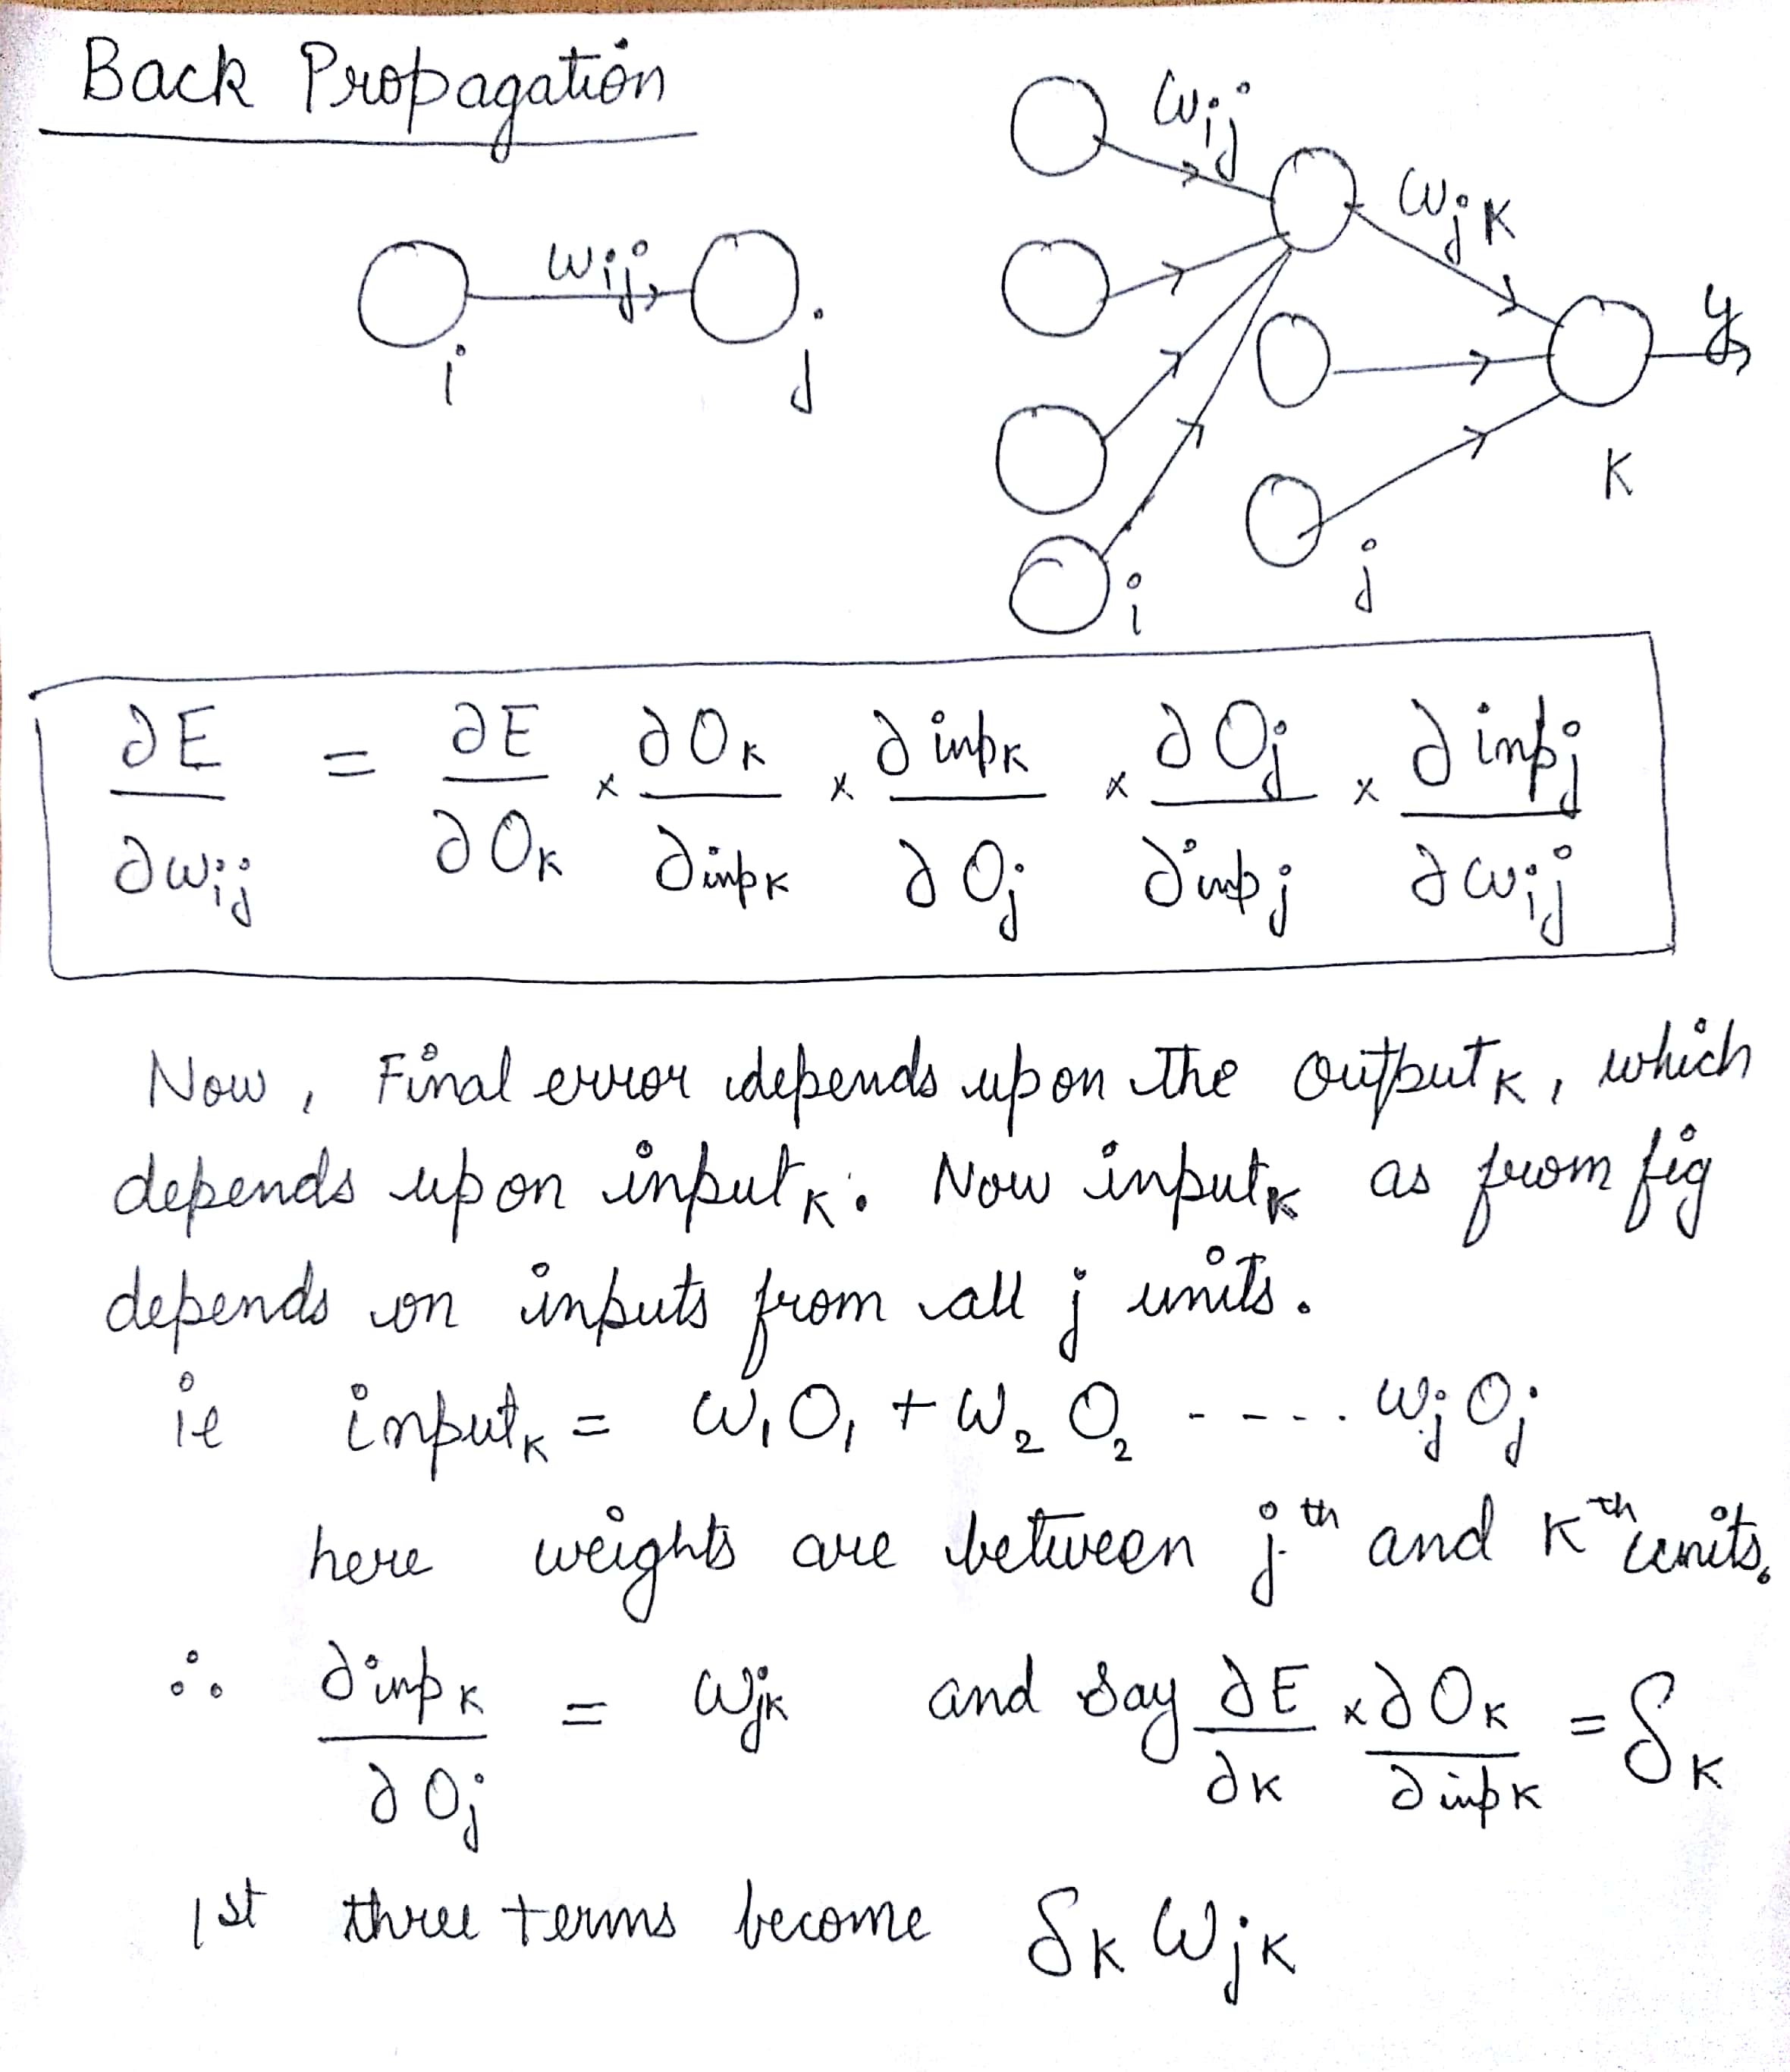 Back Propagation
wij
wjK
wij
i
j
y
K
j
i
∂E/∂wij = ∂E/∂OK × ∂OK/∂inpK × ∂inpK/∂Oj × ∂Oj/∂inpj × ∂inpj/∂wij
Now, Final error depends upon the OutputK, which
depends upon inputK. Now inputK as from fig
depends on inputs from all j units.
ie inputK = W1O1 + W2O2 ----. WjOj
here weights are between jth and Kth units.
∴ ∂inpK/∂Oj = WjK and say ∂E/∂K × ∂OK/∂inpK = δK
1st three terms become δK WjK